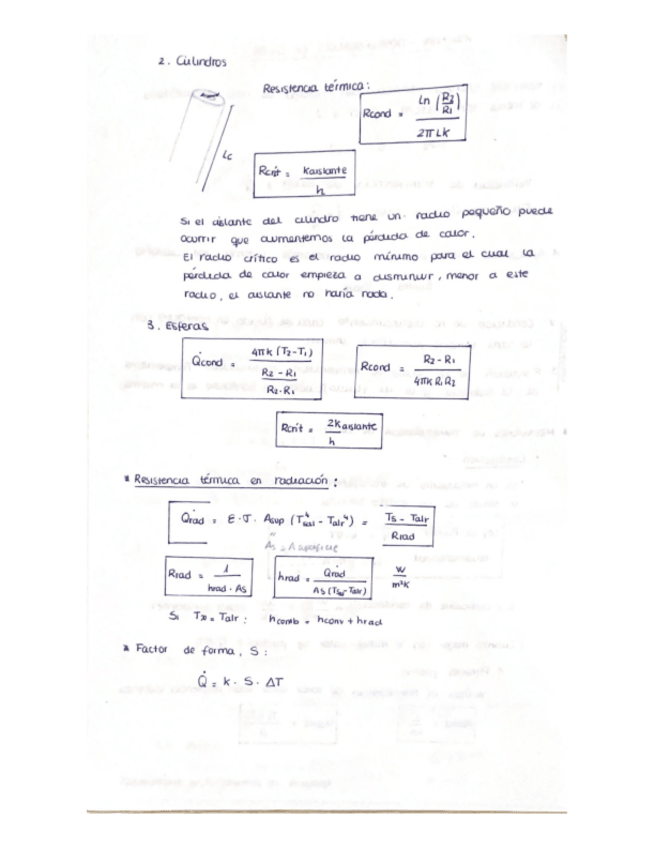 2. Cilindros
Resistencia térmica:
Rcond = Ln (R2/R1) / 2π Lk
Lc
Rcrit = Kaislante / h
Si el aislante del cilindro tiene un radio pequeño puede
ocurrir que aumentemos la pérdida de calor.
El radio crítico es el radio mínimo para el cual la
pérdida de calor empieza a disminuir, menor a este
radio, el aislante no haría nada.
3. Esferas
Q̇cond = 4πk (T2-T1) / (R2 - R1 / R2·R1)
Rcond = R2 - R1 / 4πK R1 R2
Rcrit = 2Kaislante / h
* Resistencia térmica en radiación:
Q̇rad = E·σ· Asup (Tsup⁴ - Talr⁴) = Ts - Talr / Rrad
As = A superficie
Rrad = 1 / hrad · As
hrad = Q̇rad / As (Ts - Talr)
W / m²K
Si T∞ = Talr: hcomb = hconv + hrad
* Factor de forma, S:
Q̇ = k · S · ΔT